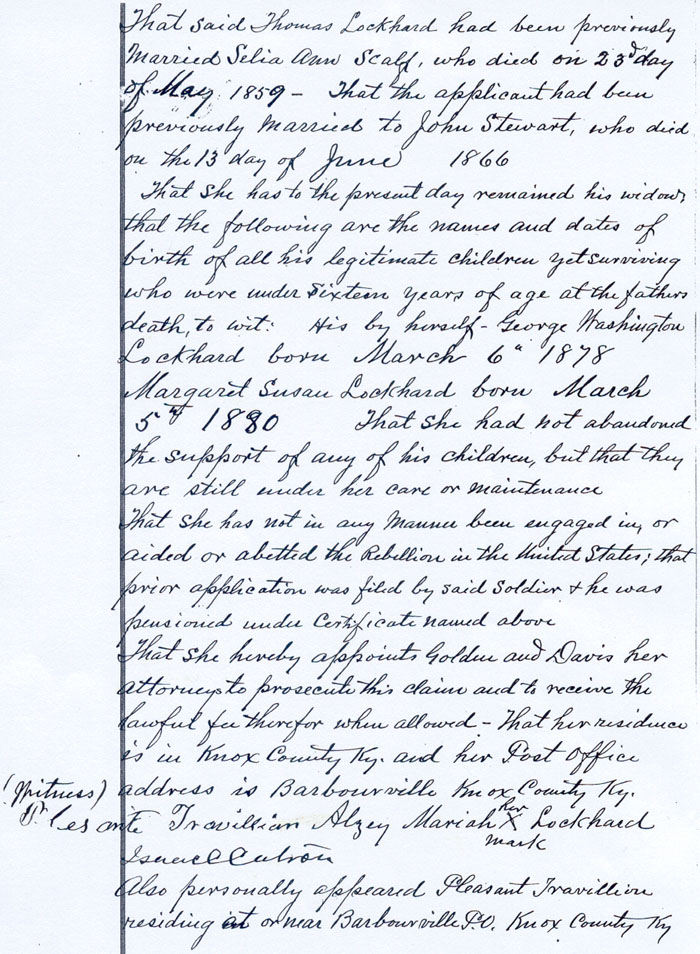 That said Thomas Lockhard had been previously
Married Selia Ann Scalf, who died on 23d day
of May 1859 – That the applicant had been
previously Married to John Stewart, who died
on the 13 day of June 1866
That she has to the present day remained his widow,
that the following are the names and dates of
birth of all his legitimate children yet surviving
who were under Sixteen years of age at the fathers
death, to wit: His by herself – George Washington
Lockhard born March 6" 1878
Margaret Susan Lockhard born March
5th 1880 That she had not abandoned
the support of any of his children, but that they
are still under her care or maintenance
That she has not in any Manner been engaged in, or
aided or abetted the Rebellion in the United States; that
prior application was filed by said Soldier & he was
pensioned under Certificate named above
That she hereby appoints Golden and Davis her
attorneys to prosecute this claim and to receive the
lawful fee therefor when allowed – That her residence
is in Knox County Ky. and her Post Office
(Witness) address is Barbourville Knox County Ky.
Plesante Travillian Alzey Mariah her X mark Lockhard
Isaac
Also personally appeared Pleasant Travillion
residing at or near Barbourville P.O. Knox County Ky